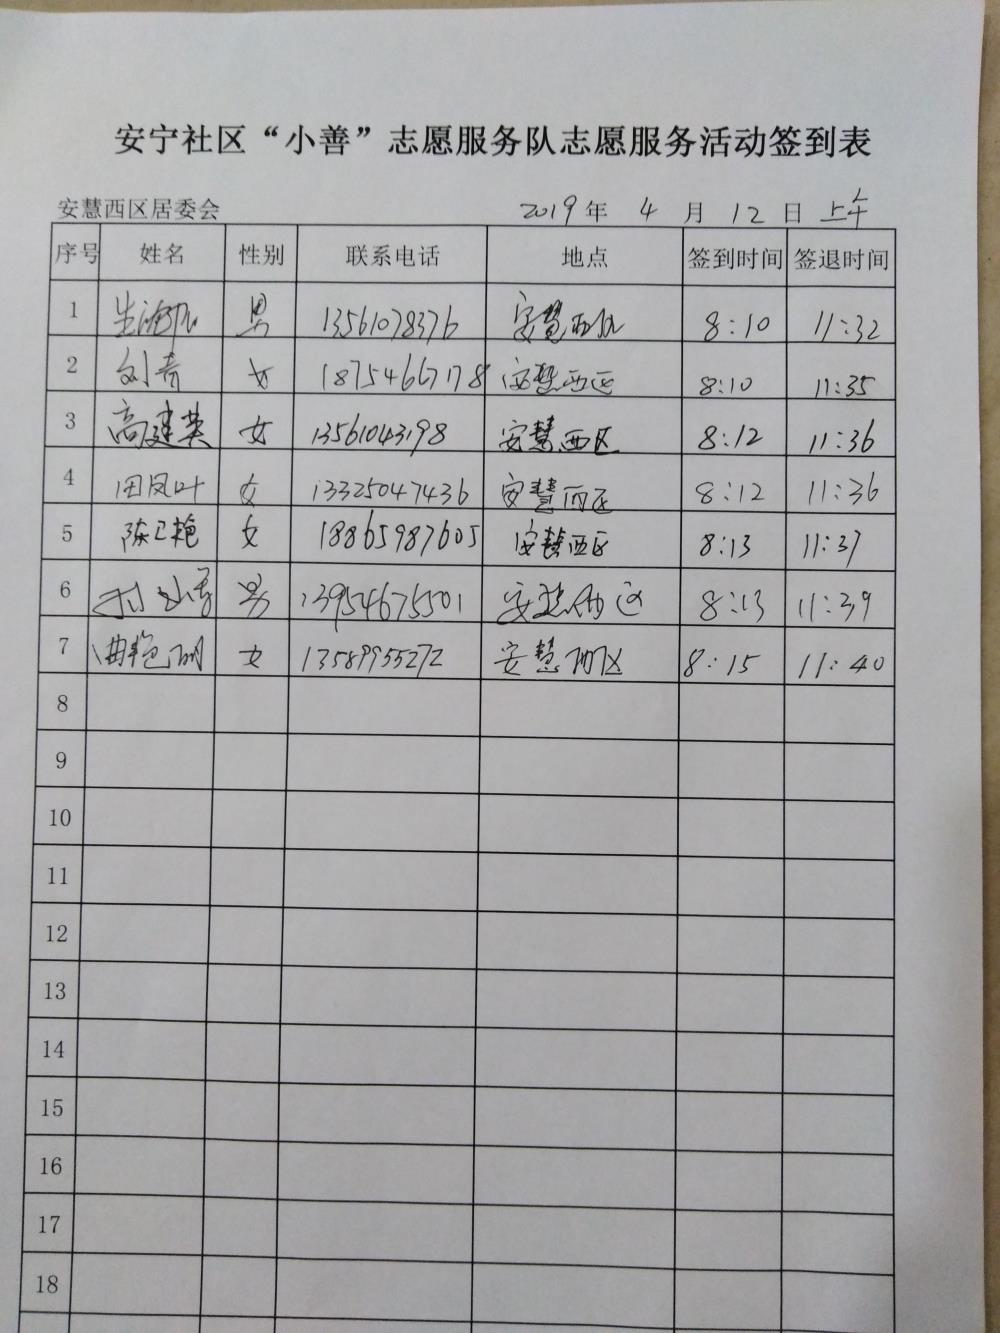 安宁社区“小善”志愿服务队志愿服务活动签到表
安慧西区居委会 2019年 4 月 12 日 上午
序号 姓名 性别 联系电话 地点 签到时间 签退时间
1 男 13561078376 安慧西区 8:10 11:32
2 刘青 女 18754667178 安慧西区 8:10 11:35
3 高建英 女 13561043198 安慧西区 8:12 11:36
4 田凤叶 女 13325047436 安慧西区 8:12 11:36
5 陈卫艳 女 18865987605 安慧西区 8:13 11:37
6 男 13954675501 安慧西区 8:13 11:39
7 曲艳丽 女 13589955272 安慧西区 8:15 11:40
8
9
10
11
12
13
14
15
16
17
18